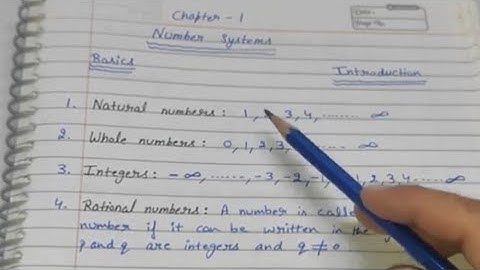 Chapter - 1
Date
Page No.
Number Systems
Basics
Introduction
1. Natural numbers : 1, 3, 4, ....... ∞
2. Whole numbers : 0, 1, 2, 3, ....... ∞
3. Integers : - ∞, ......, -3, -2, -1, 1, 2, 3, 4.....∞
4. Rational numbers : A number is
number if it can be written in the
p and q are integers and q ≠ 0